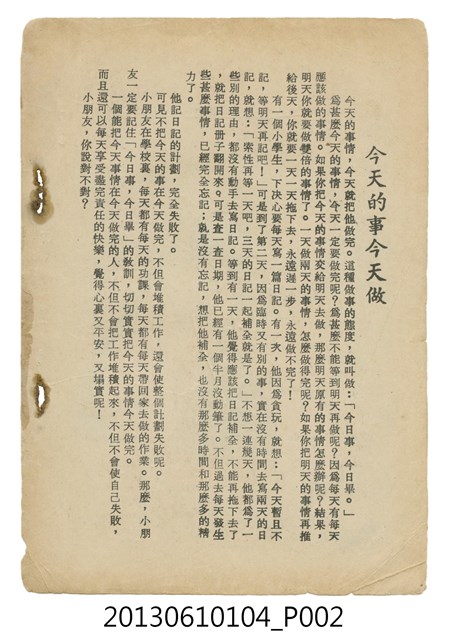 今天的事今天做
今天的事情，今天就把他做完。這種做事的態度，就叫做：「今日事，今日畢。」
爲甚麼今天的事情，今天一定要做完呢？爲甚麼不能等到明天再做呢？因爲每天有每天
應該做的事情。如果你把今天的事情交給明天去做，那麼明天原有的事情怎麼辦呢？結果，
明天你就要做雙倍的事情了。一天做兩天的事情，怎麼做得完呢？如果你把明天的事情再推
給後天，你就要一天一天拖下去，永遠遲一步，永遠做不完了！
有一個小學生，下決心要每天寫一篇日記。有一次，他因爲貪玩，就想：「今天暫且不
記，等明天再記吧！」可是到了第二天，因爲臨時又有別的事，實在沒有時間去寫兩天的日
記，就想：「索性再等一天吧，三天的日記一起補全就是了。」不想一連幾天，他都爲了一
些別的理由，都沒有動手去寫日記。等到有一天，他覺得應該把日記補全，不能再拖下去了
，就把日記册子翻開來。可是查一查日期，他已經有一個半月沒動筆了。不但過去每天發生
些甚麼事情，已經完全忘記；就是沒有忘記，想把他補全，也沒有那麼多時間和那麼多的精
力了。
他記日記的計劃，完全失敗了。
可見不把今天的事在今天做完，不但會堆積工作，還會使整個計劃失敗呢。
小朋友在學校裏，每天都有每天的功課，每天都有每天帶回家去做的作業。那麼，小朋
友一定要記住「今日事，今日畢」的敎訓，切切實實把今天的事情今天做完。
一個能把今天事情在今天做完的人，不但不會把工作堆積起來，不但不會使自己失敗，
而且還可以每天享受盡完責任的快樂，覺得心裏又平安，又塌實呢！
小朋友，你說對不對？
20130610104_P002